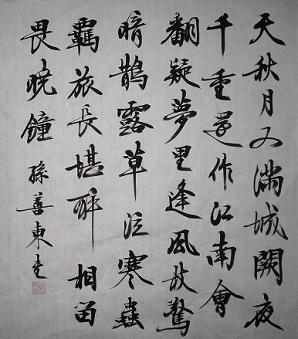 天秋月又滿城闕夜
千重還作江南會
翻疑夢里逢風枝驚
暗鵲露草泣寒蟲
羈旅長堪醉相留
畏晚鐘 孫善東書